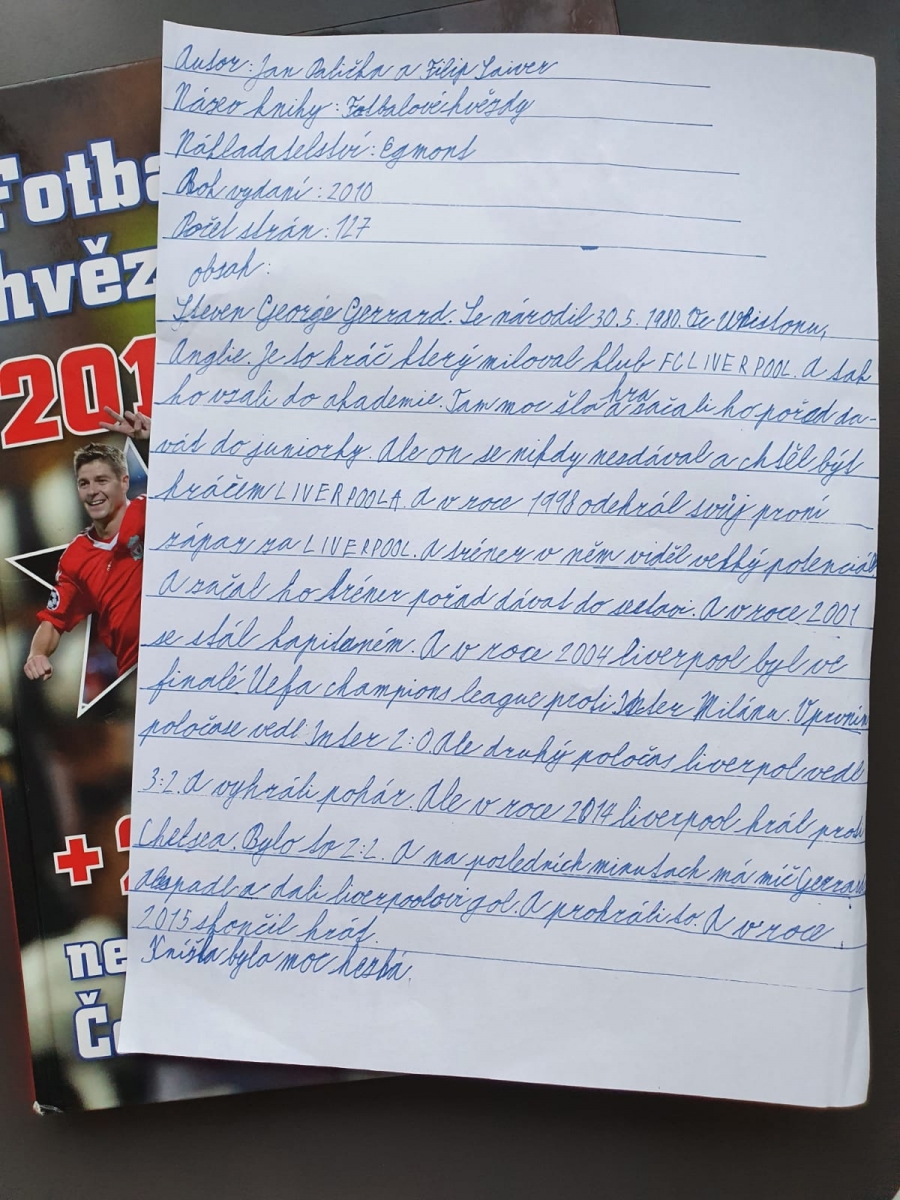 Autor: Jan Palička a Filip Saiver
Název knihy: Fotbalové hvězdy
Náhladatelství: Egmont
Rok vydaní: 2010
Počet strán: 127
obsah:
Steven George Gerrard. Se národil 30.5.1980. Ve Whistonu,
Anglie. Je to hráč který miloval klub FC LIVERPOOL. A tak
ho vzali do akademie. Tam moc šla hra a začali ho pořád da-
vát do juniorky. Ale on se nikdy nezdával a chtěl být
hráčem LIVERPOOLA. A v roce 1998 odehrál svůj první
zápaz za LIVERPOOL. A tréner v něm viděl velký potenciál
A začal ho tréner pořad dávat do sestavi. A v roce 2001
se stál kapitaném. A v roce 2004 liverpool byl ve
finalé Uefa champions league proti Inter Milánu. V prvním
poločase vedl Inter 2:0. Ale druhý poločas liverpol vedl
3:2. A vyhráli pohár. Ale v roce 2014 liverpool hrál proti
Chelsea. Bylo to 2:2. A na posledních minutach má míč Gerrard
a dali liverpoolovi gol. A prohráli to. A v roce
2015 skončil hrát.
Knížka byla moc hezká.
Fotba
hvěz
201
+ 2
ne
Č